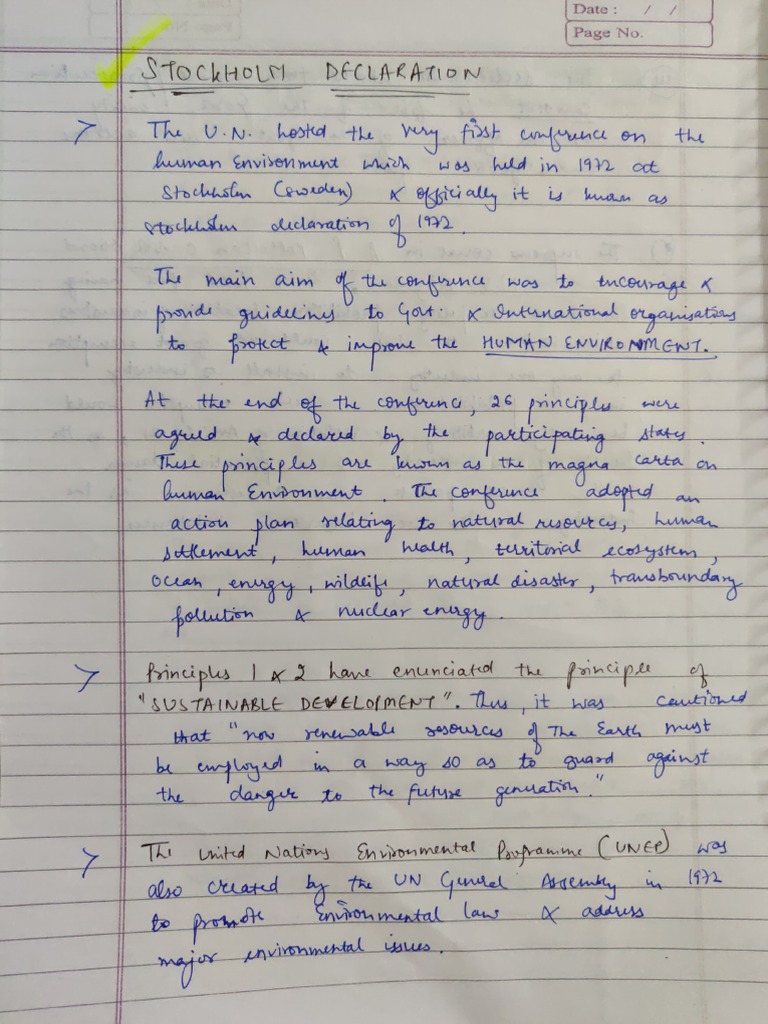 Date : / /
Page No.
STOCKHOLM DECLARATION
> The U.N. hosted the very first conference on the
human Environment which was held in 1972 at
Stockholm (Sweden) & officially it is known as
Stockholm declaration of 1972.
The main aim of the conference was to encourage &
provide guidelines to Govt. & International organisations
to protect & improve the HUMAN ENVIRONMENT.
At the end of the conference, 26 principles were
agreed & declared by the participating states.
These principles are known as the magna carta on
human Environment. The conference adopted an
action plan relating to natural resources, human
settlement, human health, territorial ecosystem,
ocean, energy, wildlife, natural disaster, transboundary
pollution & nuclear energy.
> Principles 1 & 2 have enunciated the principle of
"SUSTAINABLE DEVELOPMENT". Thus, it was cautioned
that "non renewable resources of The Earth must
be employed in a way so as to guard against
the danger to the future generation."
> The United Nations Environmental Programme (UNEP) was
also created by the UN General Assembly in 1972
to promote Environmental law & address
major environmental issues.